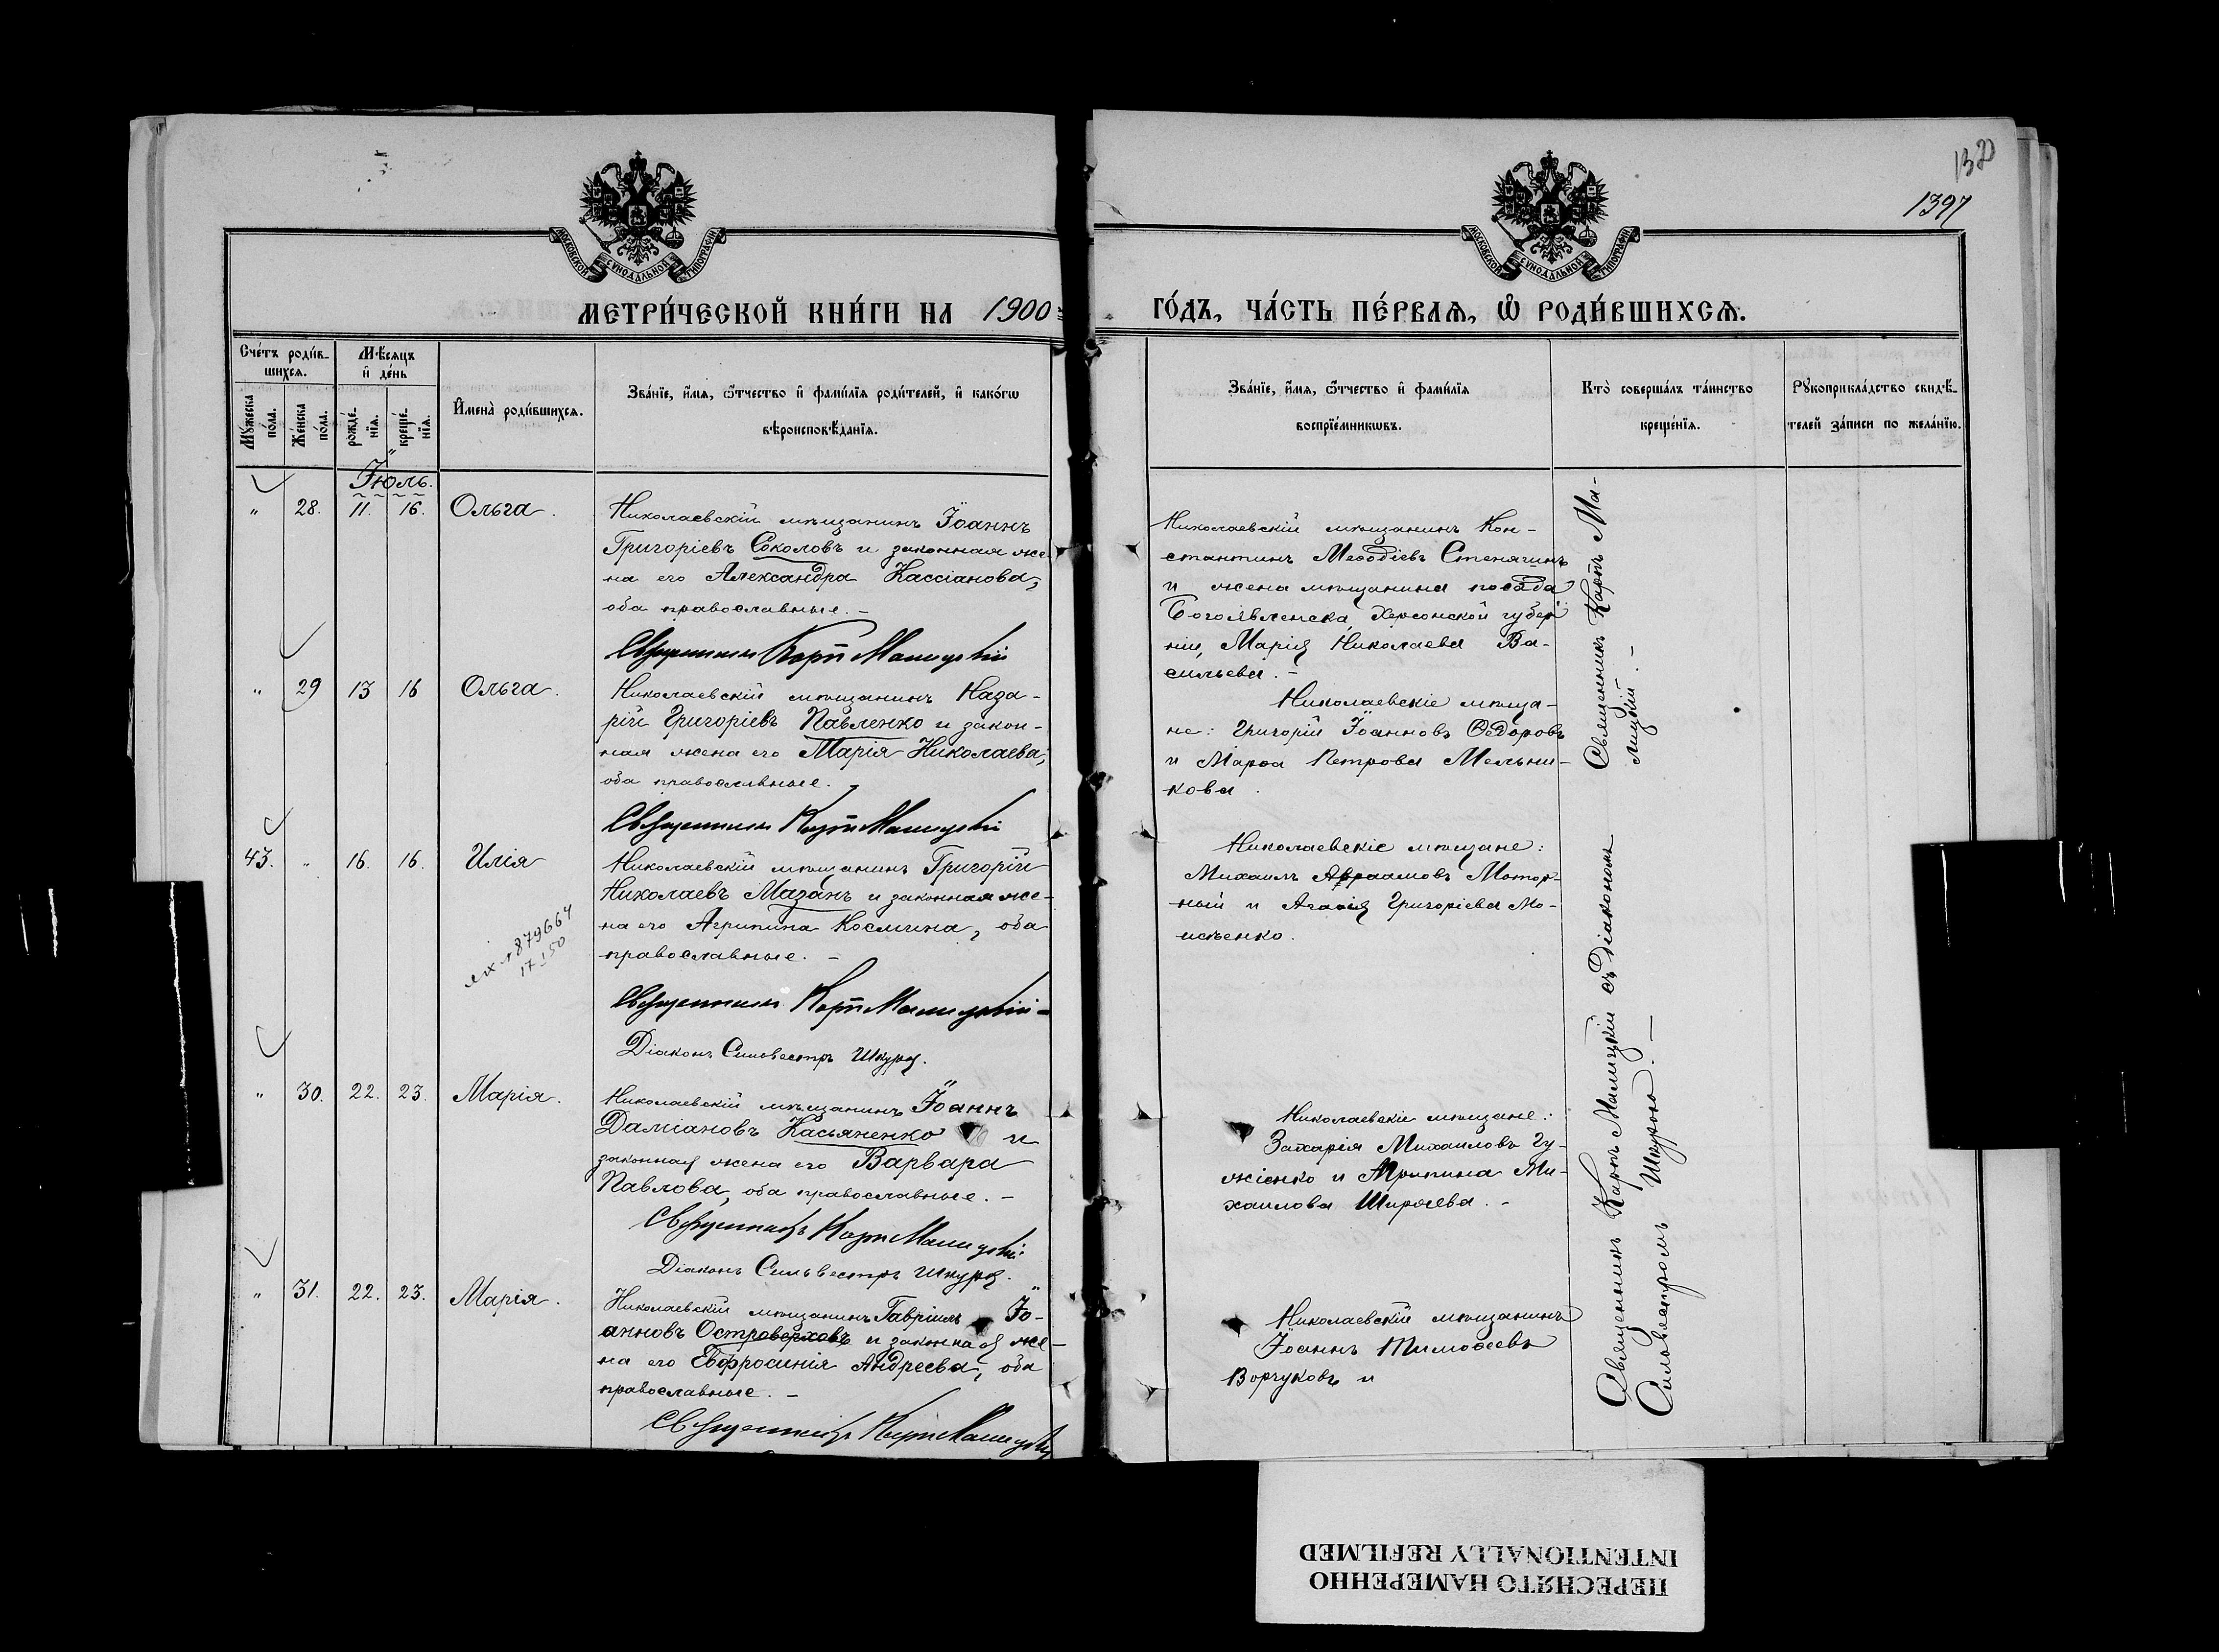 1320
1397
МОСКОВСКОЙ СУНОДАЛЬНОЙ ТИПОГРАФІИ
МОСКОВСКОЙ СУНОДАЛЬНОЙ ТИПОГРАФІИ
МЕТРИ́ЧЕСКОЙ КНИ́ГИ НА 1900
ГО́ДЪ, ЧА́СТЬ ПЕ́РВАѦ, Ѽ РОДИ́ВШИХСѦ.
Сче́тъ роди́в-
шихсѧ.
Мѣ́сѧцъ
и҆ де́нь
Мꙋ́жеска
по́ла.
Же́нска
по́ла.
рожде́-
нїѧ.
креще́-
нїѧ.
И҆мена̀ роди́вшихсѧ.
Зва́нїе, и҆́мѧ, ѻ҆́тчество и҆ фами́лїѧ роди́телей, и҆ како́гѡ
вѣроисповѣ́данїѧ.
Зва́нїе, и҆́мѧ, ѻ҆́тчество и҆ фами́лїѧ
воспрїе́мникѡвъ.
Кто̀ соверша́лъ та́инство
креще́нїѧ.
Рꙋкоприкла́дство свидѣ́-
телей за́писи по жела́нїю.
Іюль.
„ 28. 11. 16. Ольга.
Николаевскій мѣщанинъ Іоаннъ
Григоріевъ Соколовъ и законная же-
на его Александра Кассіанова,
оба православные. –
Священникъ Карпъ Малицкій
Николаевскій мѣщанинъ Кон-
стантинъ Меѳодіевъ Стенягинъ
и жена мѣщанина посада
Богоявленска, Херсонской губер
ніи, Марія Николаева Ва-
сильева. –
Священникъ Карпъ Ма-
лицкій. –
„ 29 13 16 Ольга.
Николаевскій мѣщанинъ Наза-
рій Григоріевъ Павленко и закон-
ная жена его Марія Николаева,
оба православные. –
Священникъ Карпъ Малицкій
Николаевскіе мѣща-
не: Григорій Іоанновъ Ѳедоровъ
и Марѳа Петрова Мельни-
кова.
43. „ 16. 16. Илія
879664
17 50
Николаевскій мѣщанинъ Григорій
Николаевъ Мазанъ и законная же-
на его Агрипина Космина, оба
православные. –
Священникъ Карпъ Малицкій –
Діаконъ Сильвестръ Шкура.
Николаевскіе мѣщане:
Михаилъ Авраамовъ Мотор-
ный и Агаѳія Григоріева Мо-
исѣенко.
Священникъ Карпъ Малицкій съ Діакономъ
Сильвестромъ Шкурою. –
„ 30. 22. 23. Марія.
Николаевскій мѣщанинъ Іоаннъ
Даміановъ Касьяненко и
законная жена его Варвара
Павлова, оба православные. –
Священникъ Карпъ Малицкій
Діаконъ Сильвестръ Шкура.
Николаевскіе мѣщане:
Захарія Михаиловъ Гу-
жіенко и Агрипина Ми-
хаилова Ширяева. –
„ 31. 22. 23. Марія.
Николаевскій мѣщанинъ Гавріилъ Іо-
анновъ Островерховъ и законная же-
на его Евфросинія Андреева, оба
православные. –
Священникъ Карпъ Малицкій
Николаевскій мѣщанинъ
Іоаннъ Тимоѳеевъ
Ворчуковъ и
ПЕРЕСНЯТО НАМЕРЕННО
INTENTIONALLY REFILMED